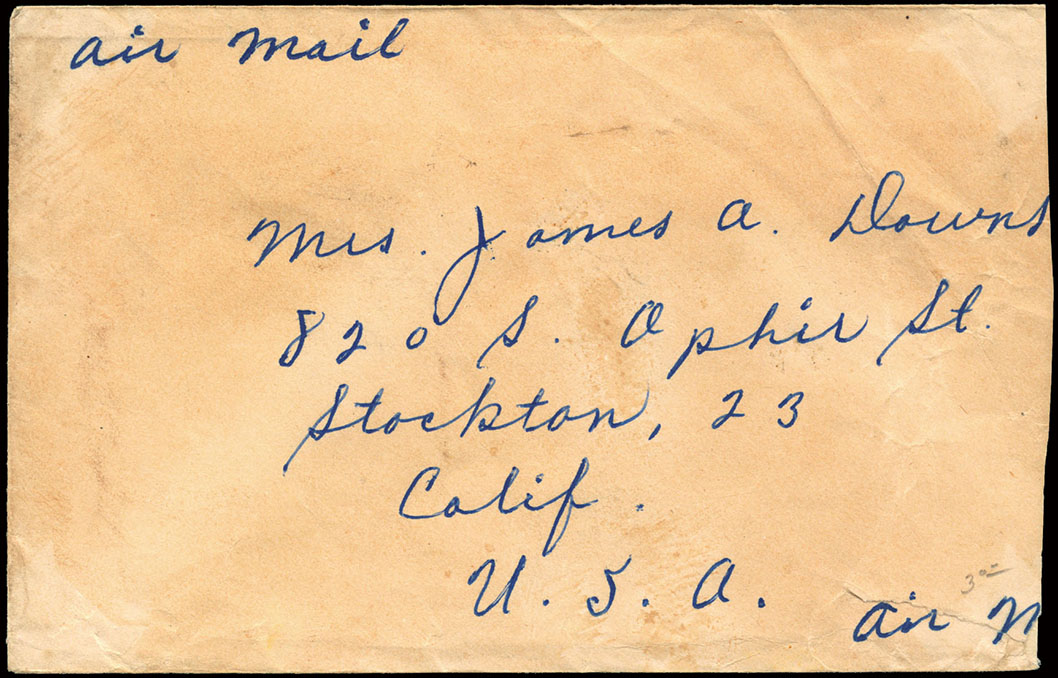 air mail
Mrs. James A. Downs
820 S. Ophir St.
Stockton, 23
Calif.
U. S. A.
3⁰⁰
air M